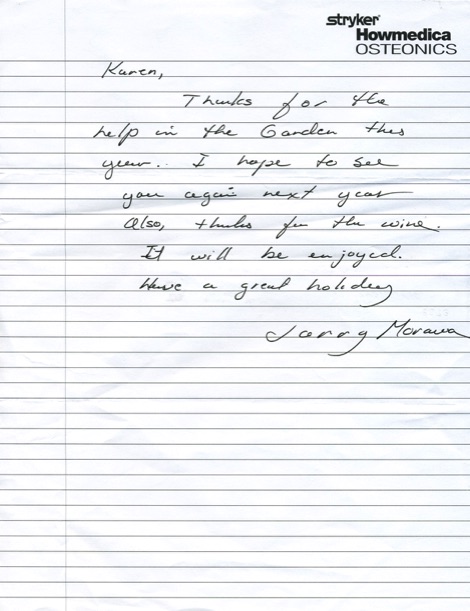 stryker
Howmedica
OSTEONICS
Karen,
Thanks for the
help in the Garden this
year.. I hope to see
you again next year
Also, thanks for the wine.
It will be enjoyed.
Have a great holiday
Morawa